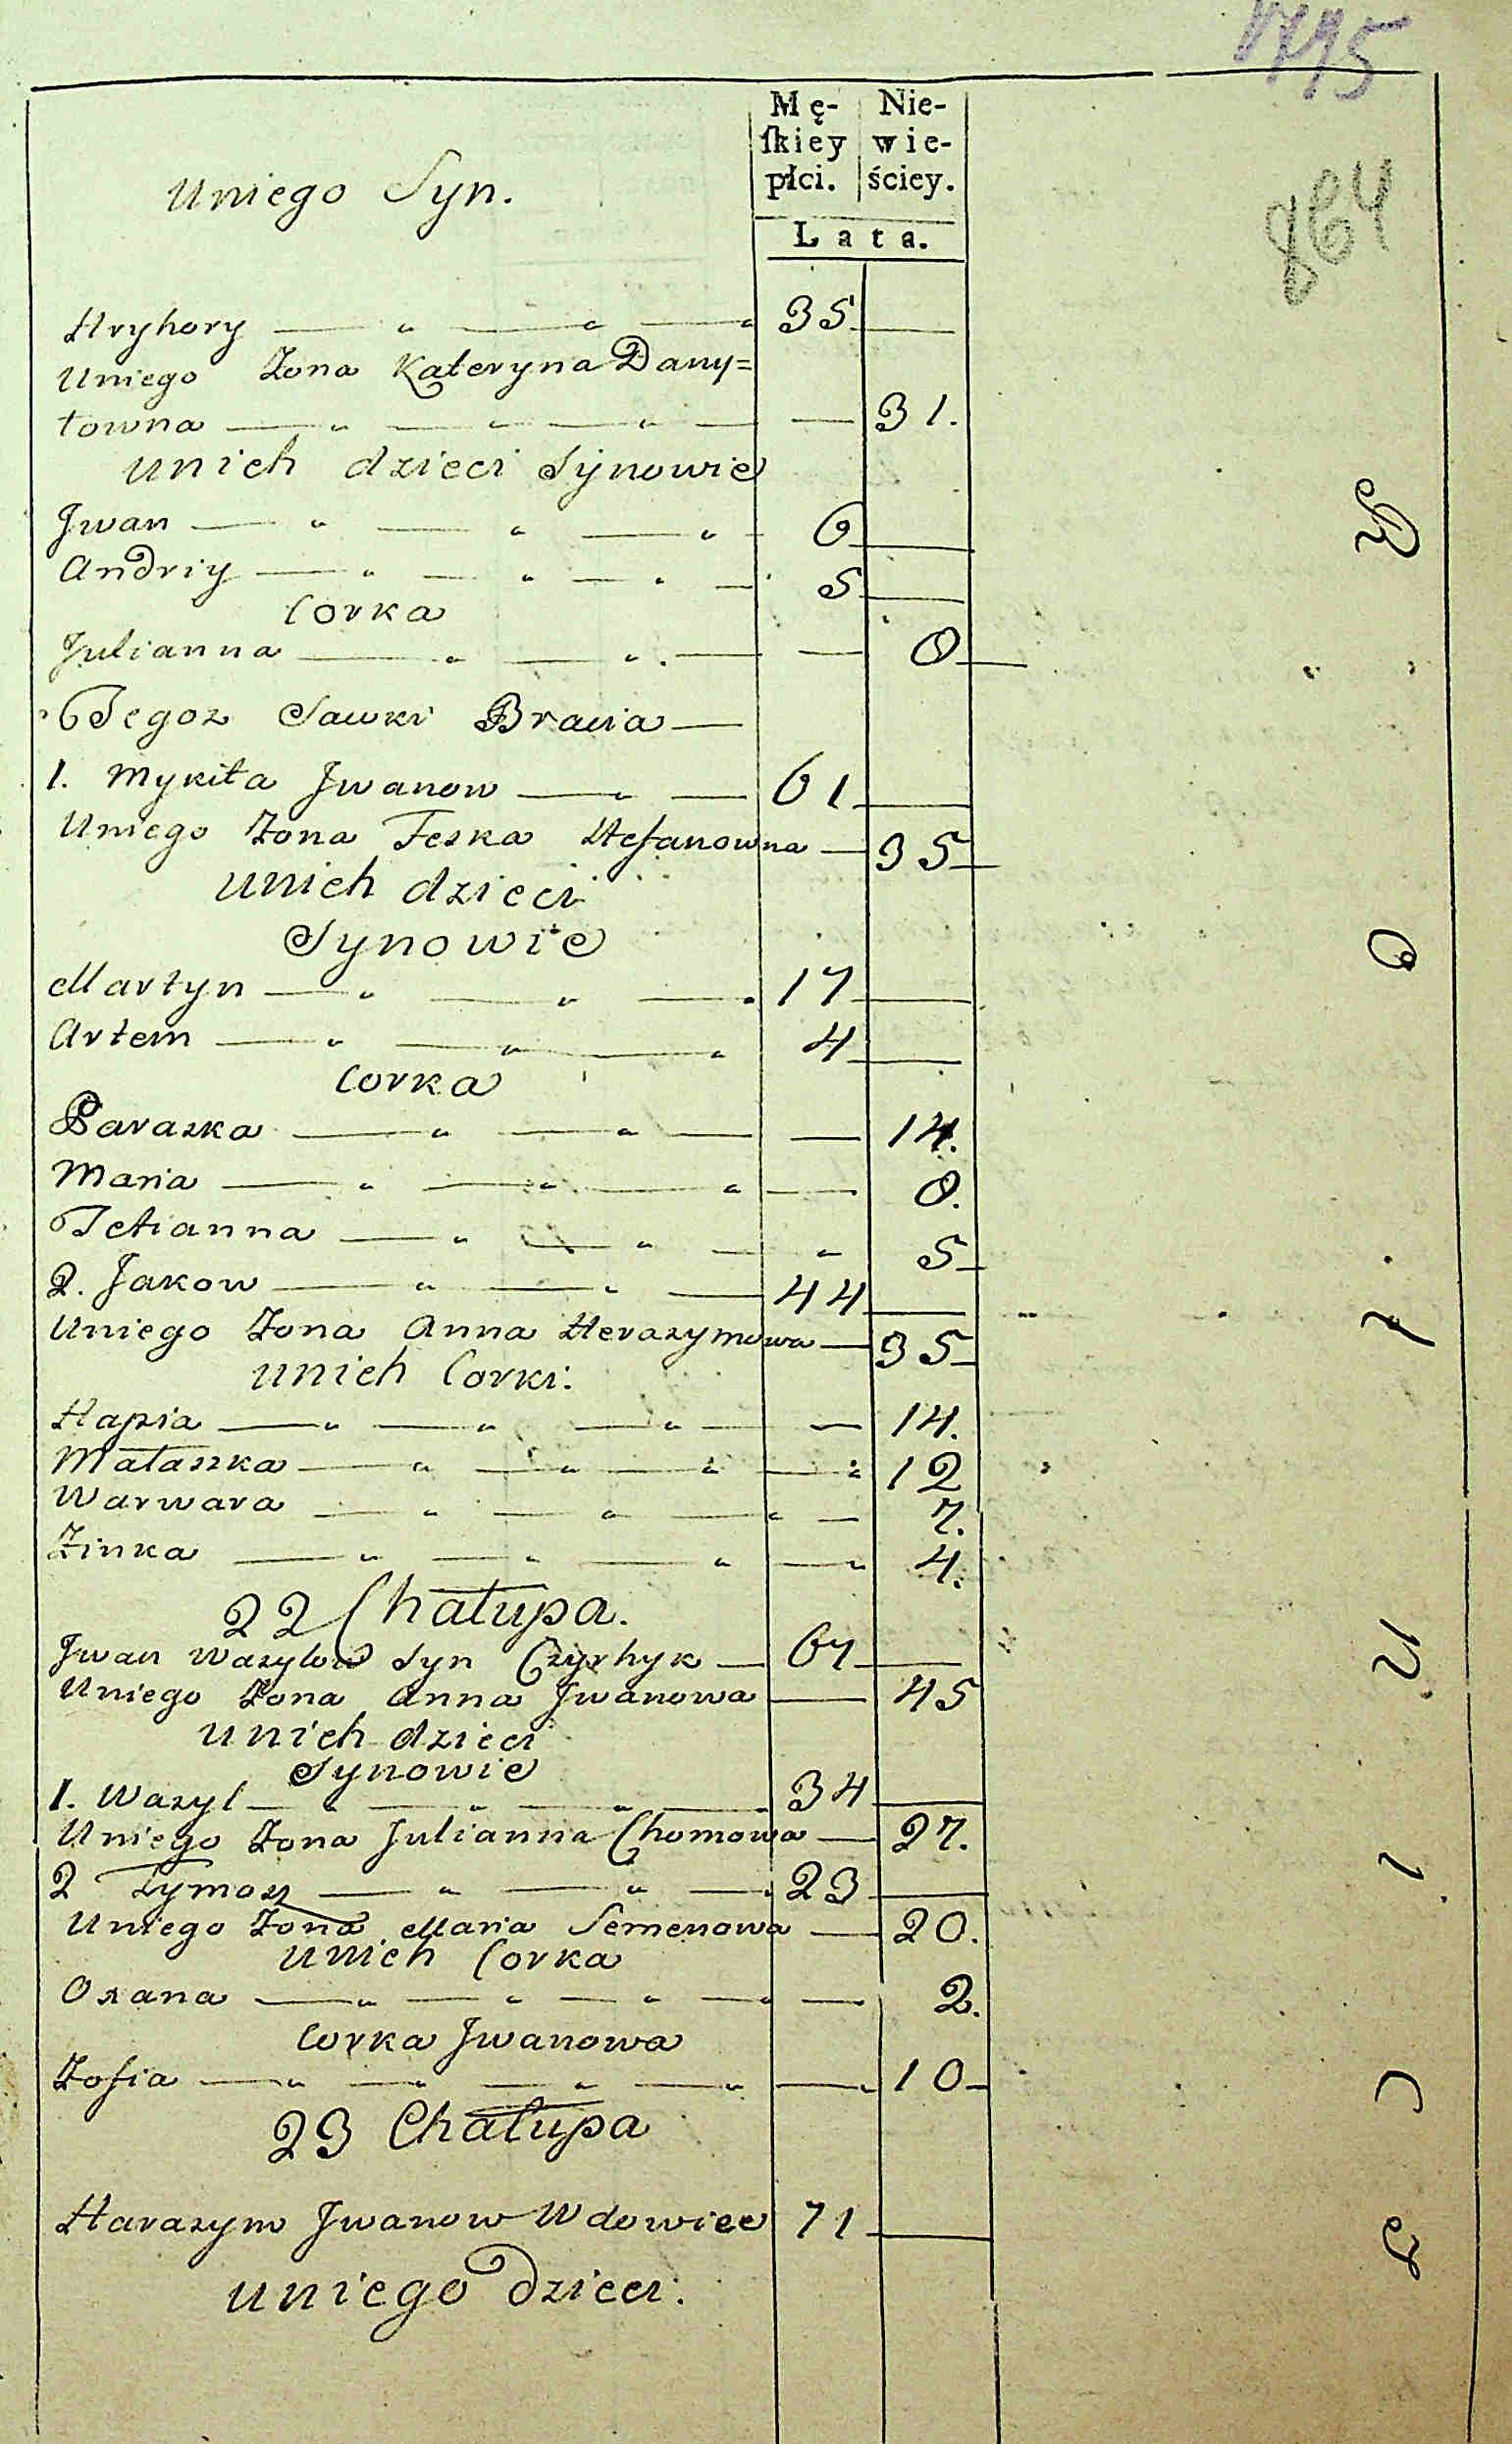 1795
864
Mę- Nie-
ſkiey wie-
płci. ściey.
Lata.
Uniego Syn.
Hryhory — " — " — " 35 —
Uniego Zona Kateryna Dany=
łowna — " — " — " — — 31.
unich dzieci Synowie
Jwan — " — " — " - 6 —
Andriy — " — " — " — 5 —
Corka
Julianna — " — " . — — 0 —
Tegoz Sawki Bracia —
1. Mykita Jwanow — " — 61 —
Uniego Zona Feska Stefanowna — 35 —
unich dzieci
Synowie
Martyn — " — " — . 17 —
Artem — " — " — " 4 —
Corka
Paraska — " — " — — 14.
Maria — " — " — " — 0.
Tetianna — " — " — " 5 —
2. Jakow — " — " — 44 —
Uniego Zona Anna Herazymowa — 35 —
unich Corki:
Hapia — " — " — " — — 14.
Małaszka — " — " — " — " 12
Warwara — " — " — " — 7.
Zinka — " — " — " — " 4.
22 Chałupa.
Jwan Wazylow Syn Czyrhyk — 67 —
Uniego Zona Anna Jwanowa — 45
unich dzieci
Synowie
1. Wazyl — " — " — " — . 34 —
Uniego Zona Julianna Chomowa — 27.
2 Tymosz — " — " — . 23 —
Uniego Zona Maria Semenowa — 20.
unich Corka
Oxana — " — " — " — " — 2.
Corka Jwanowa
Zofia — " — " — " — " — " 10 —
23 Chałupa
Harazym Jwanow Wdowiec 71 —
uniego Dzieci: